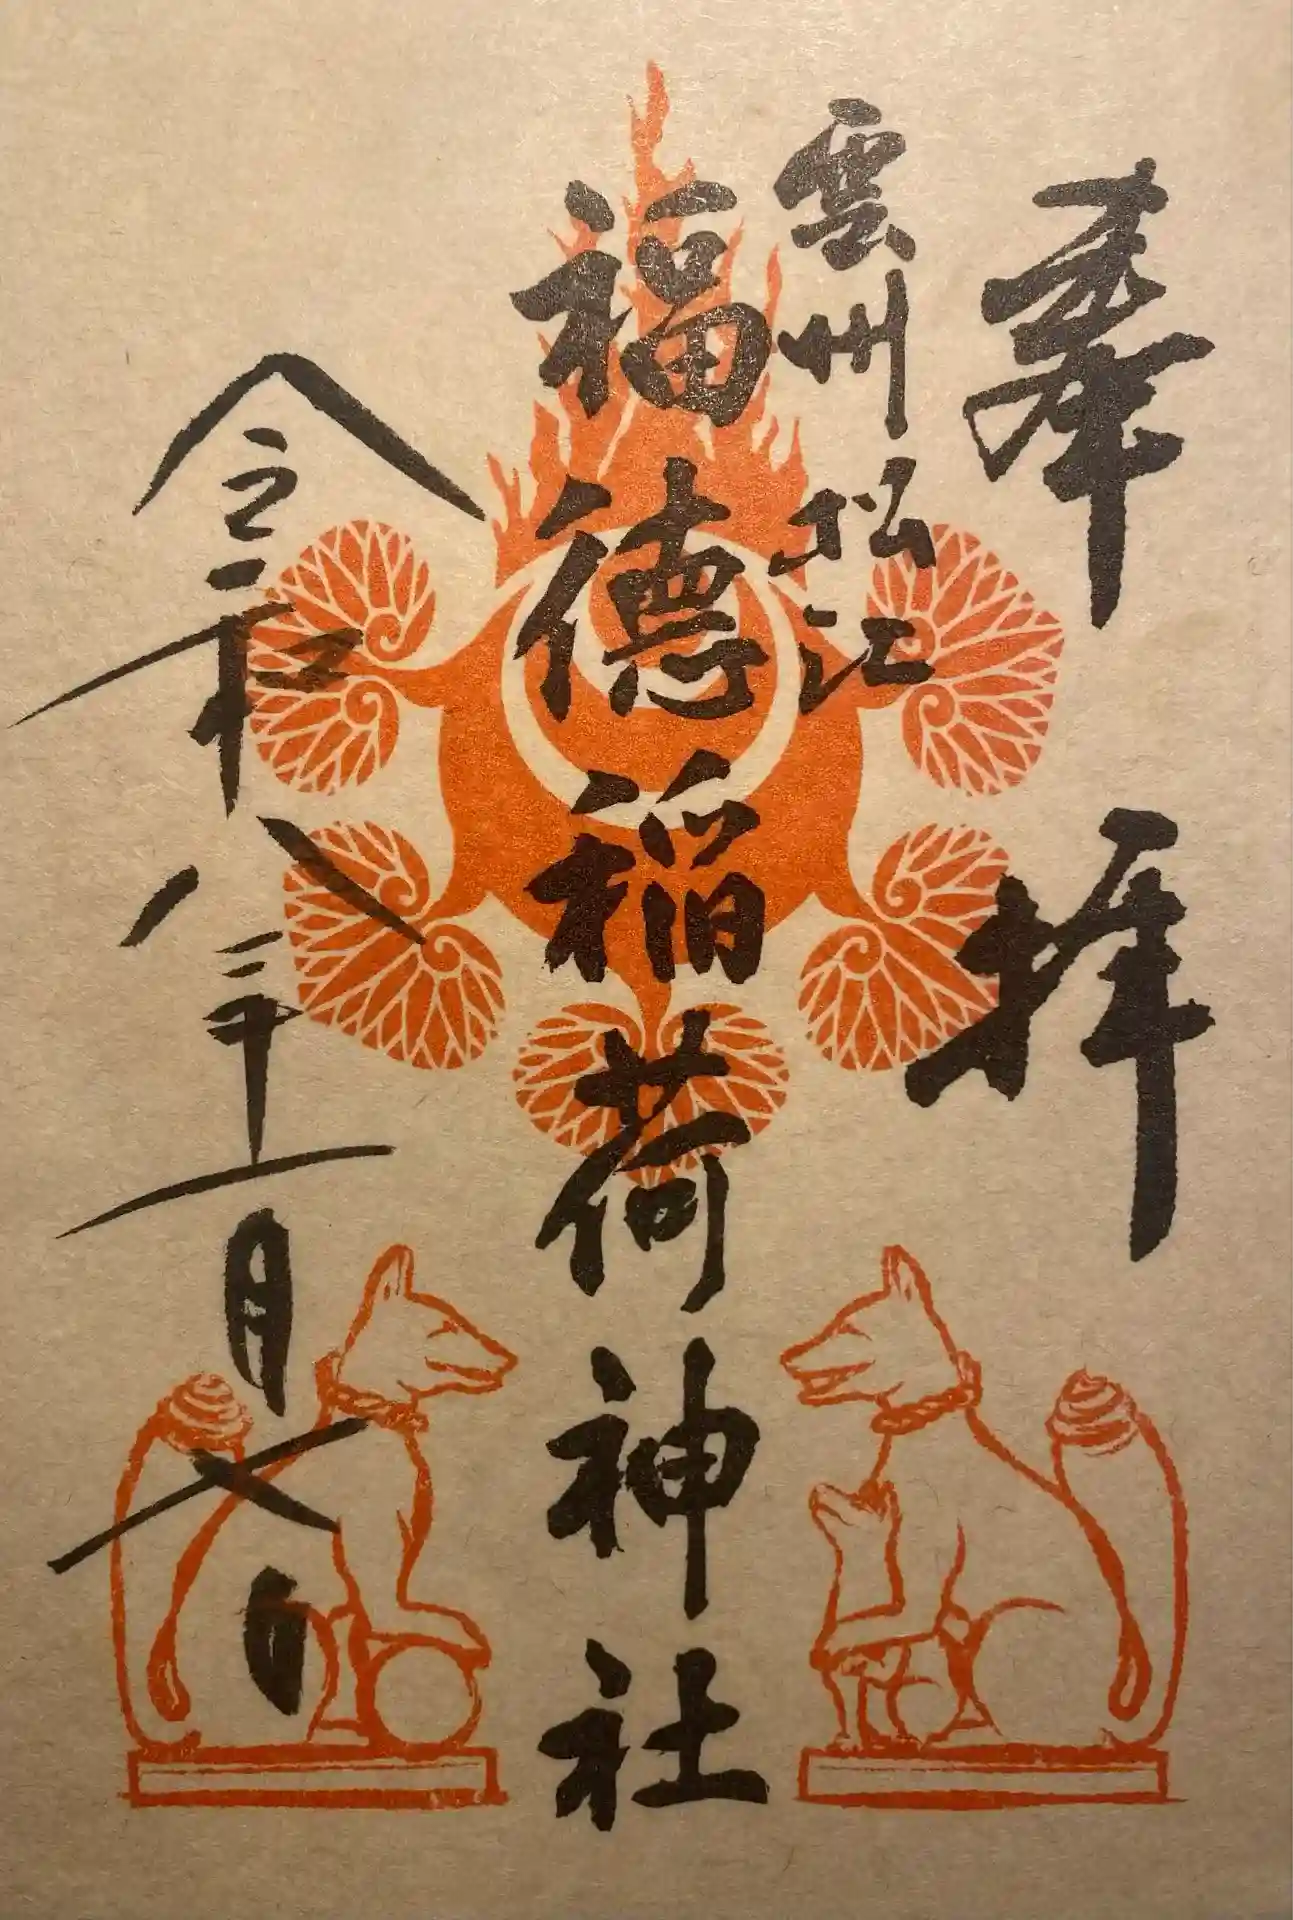 奉拝
雲州松江
福徳稲荷神社
令和八年一月七日